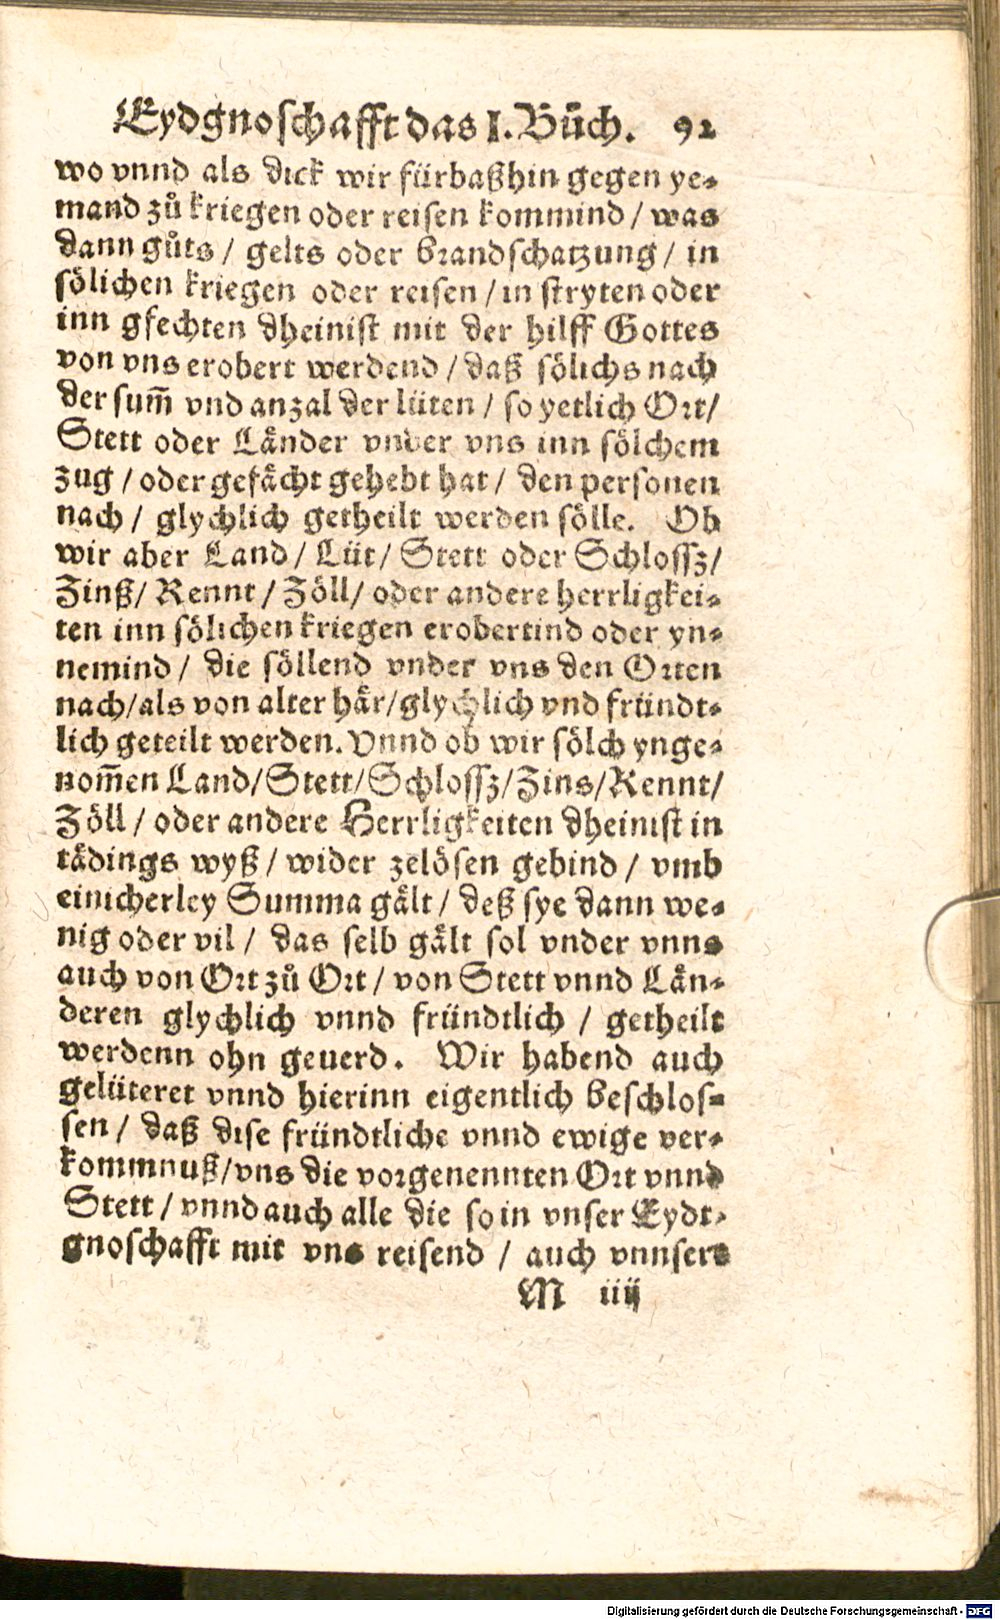 Eydgnoschafft das I. Bůch. 92
wo vnnd als dick wir fürbaßhin gegen ye-
mand zů kriegen oder reisen kommind / was
dann gůts / gelts oder brandschatzung / in
sölichen kriegen oder reisen / in stryten oder
inn gfechten dheinist mit der hilff Gottes
von vns erobert werdend / daß sölichs nach
der sum̃ vnd anzal der lüten / so yetlich Ort/
Stett oder Länder vnder vns inn sölchem
zug / oder gefächt gehebt hat / den personen
nach / glychlich getheilt werden sölle. Ob
wir aber Land / Lüt / Stett oder Schlossz/
Zinß/ Rennt / Zöll/ oder andere herrligkei-
ten inn sölichen kriegen erobertind oder yn-
nemind / die söllend vnder vns den Orten
nach/als von alter här/glychlich vnd fründt-
lich geteilt werden. Vnnd ob wir sölch ynge-
nom̃en Land/Stett/Schlossz/Zins/Rennt/
Zöll / oder andere Herrligkeiten dheinist in
tädings wyß / wider zelösen gebind / vmb
einicherley Summa gält / deß sye dann we-
nig oder vil / das selb gält sol vnder vnns
auch von Ort zů Ort / von Stett vnnd Län-
deren glychlich vnnd fründtlich / getheilt
werdenn ohn geuerd. Wir habend auch
gelüteret vnnd hierinn eigentlich beschlos-
sen / daß dise fründtliche vnnd ewige ver-
kommnuß/vns die vorgenennten Ort vnnd
Stett / vnnd auch alle die so in vnser Eydt-
gnoschafft mit vns reisend / auch vnnsere
M iiij
Digitalisierung gefördert durch die Deutsche Forschungsgemeinschaft - DFG